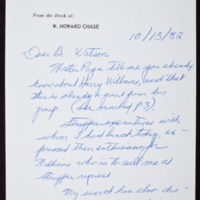 From the Desk of:
W. HOWARD CHASE
10/13/82
Dear Dr. Watson
Walter Page tells me you already
know about Harry Williams, and that
there is already a grant from his
group (see marking p 3)
Stauffer executives with
whom I had lunch today, ex-
pressed their enthusiasm for
Nelson who is to call me at
Stauffer request
My search has also dis-